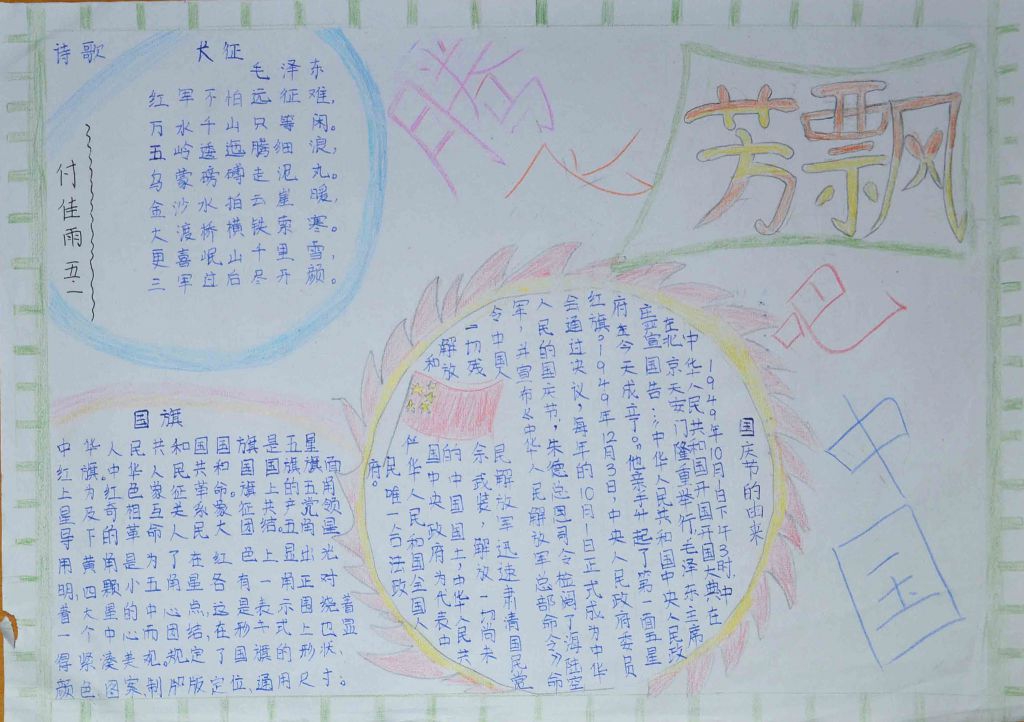 诗歌
长征
毛泽东
红军不怕远征难,
万水千山只等闲。
五岭逶迤腾细浪,
乌蒙磅礴走泥丸。
金沙水拍云崖暖,
大渡桥横铁索寒。
更喜岷山千里雪,
三军过后尽开颜。
付佳雨 五.一
腾飞吧中国
芳飘
国旗
中华人民共和国国旗是五星
红旗。中华人民共和国国旗旗面
上为红色象征革命。旗上的五角
星及其相互关系象征共产党领
导下的革命人民大团结。五角星
用黄角是为了在红色上显出光
明,四颗小五角星各有一角正对着
着大星的中心点,这是表示围绕着
一个中心而团结,在形式上也显
得紧凑美观。规定了国旗的形状、
颜色、图案、制版定位、通用尺寸。
国庆节的由来
1949年10月1日下午3时,中
中华人民共和国开国开国大典,在
在北京天安门隆重举行,毛泽东主席
庄严宣国告:《中华人民共和国中央人民政
府在今天成立了。他亲手升起了第一面五星
红旗。1949年12月3日,中央人民政府委员
会通过决议,每年的10月1日正式成为中华
人民的国庆节,朱德总司令检阅了海陆空
军,并宣布《中华人民解放军总部命令》命
令中国人民解放军迅速肃清国民党
一切残余武装,解放一切尚未
解放的中国国土,中华人民共
和国中央政府为代表中
华人民共和国全国人
民唯一合法政
府。